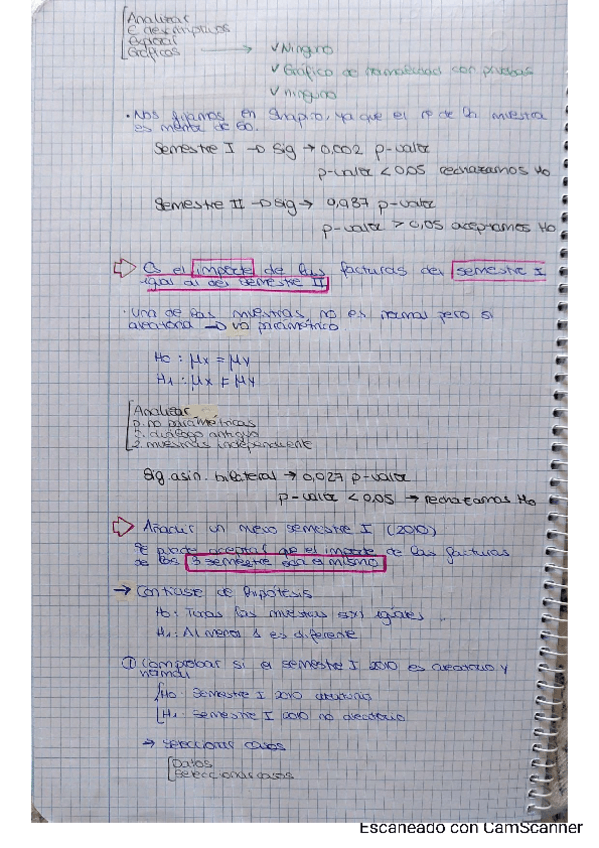 Analizar
E. descriptivos
Explorar
Gráficos → ✓ Ninguno
✓ Gráfico de normalidad con pruebas
✓ ninguno
· Nos fijamos en Shapiro, ya que el nº de la muestra
es menor de 50.
Semestre I → Sig → 0,002 p-valor
p-valor < 0,05 rechazamos Ho
Semestre II → Sig → 0,937 p-valor
p-valor > 0,05 aceptamos Ho
⇨ Es el importe de las facturas del semestre I
igual al del semestre II
· Una de las muestras, no es normal pero si
aleatoria → no paramétrico
Ho : μx = μy
H1 : μx ≠ μy
Analizar
p. no paramétricas
C. diálogo antiguo
2 muestras independiente
Sig. asin. bilateral → 0,027 p-valor
p-valor < 0,05 → rechazamos Ho
⇨ Añadir un nuevo semestre I (2010)
Se puede aceptar que el importe de las facturas
de los 3 semestre son el mismo
→ Contraste de hipótesis
Ho: Todas las muestras son iguales
H1: Al menos 1 es diferente
① Comprobar si el semestre I 2010 es aleatorio y
normal
Ho: Semestre I 2010 aleatorio
H1: Semestre I 2010 no aleatorio
→ Seleccionar casos
Datos
Seleccionar casos
Escaneado con CamScanner